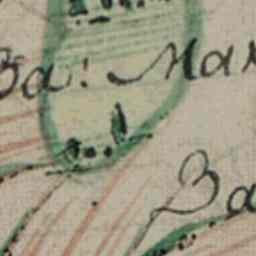 Ba: Mar
Ba